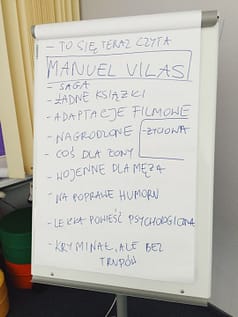 - TO SIĘ TERAZ CZYTA
MANUEL VILAS
- SAGA
- ŁADNE KSIĄŻKI
- ADAPTACJE FILMOWE
- NAGRODZONE
- ŻYCIOWA
- COŚ DLA ŻONY
- WOJENNE DLA MĘŻA
- NA POPRAWĘ HUMORU
- LEKKA POWIEŚĆ PSYCHOLOGICZNA
- KRYMINAŁ, ALE BEZ
TRUPÓW